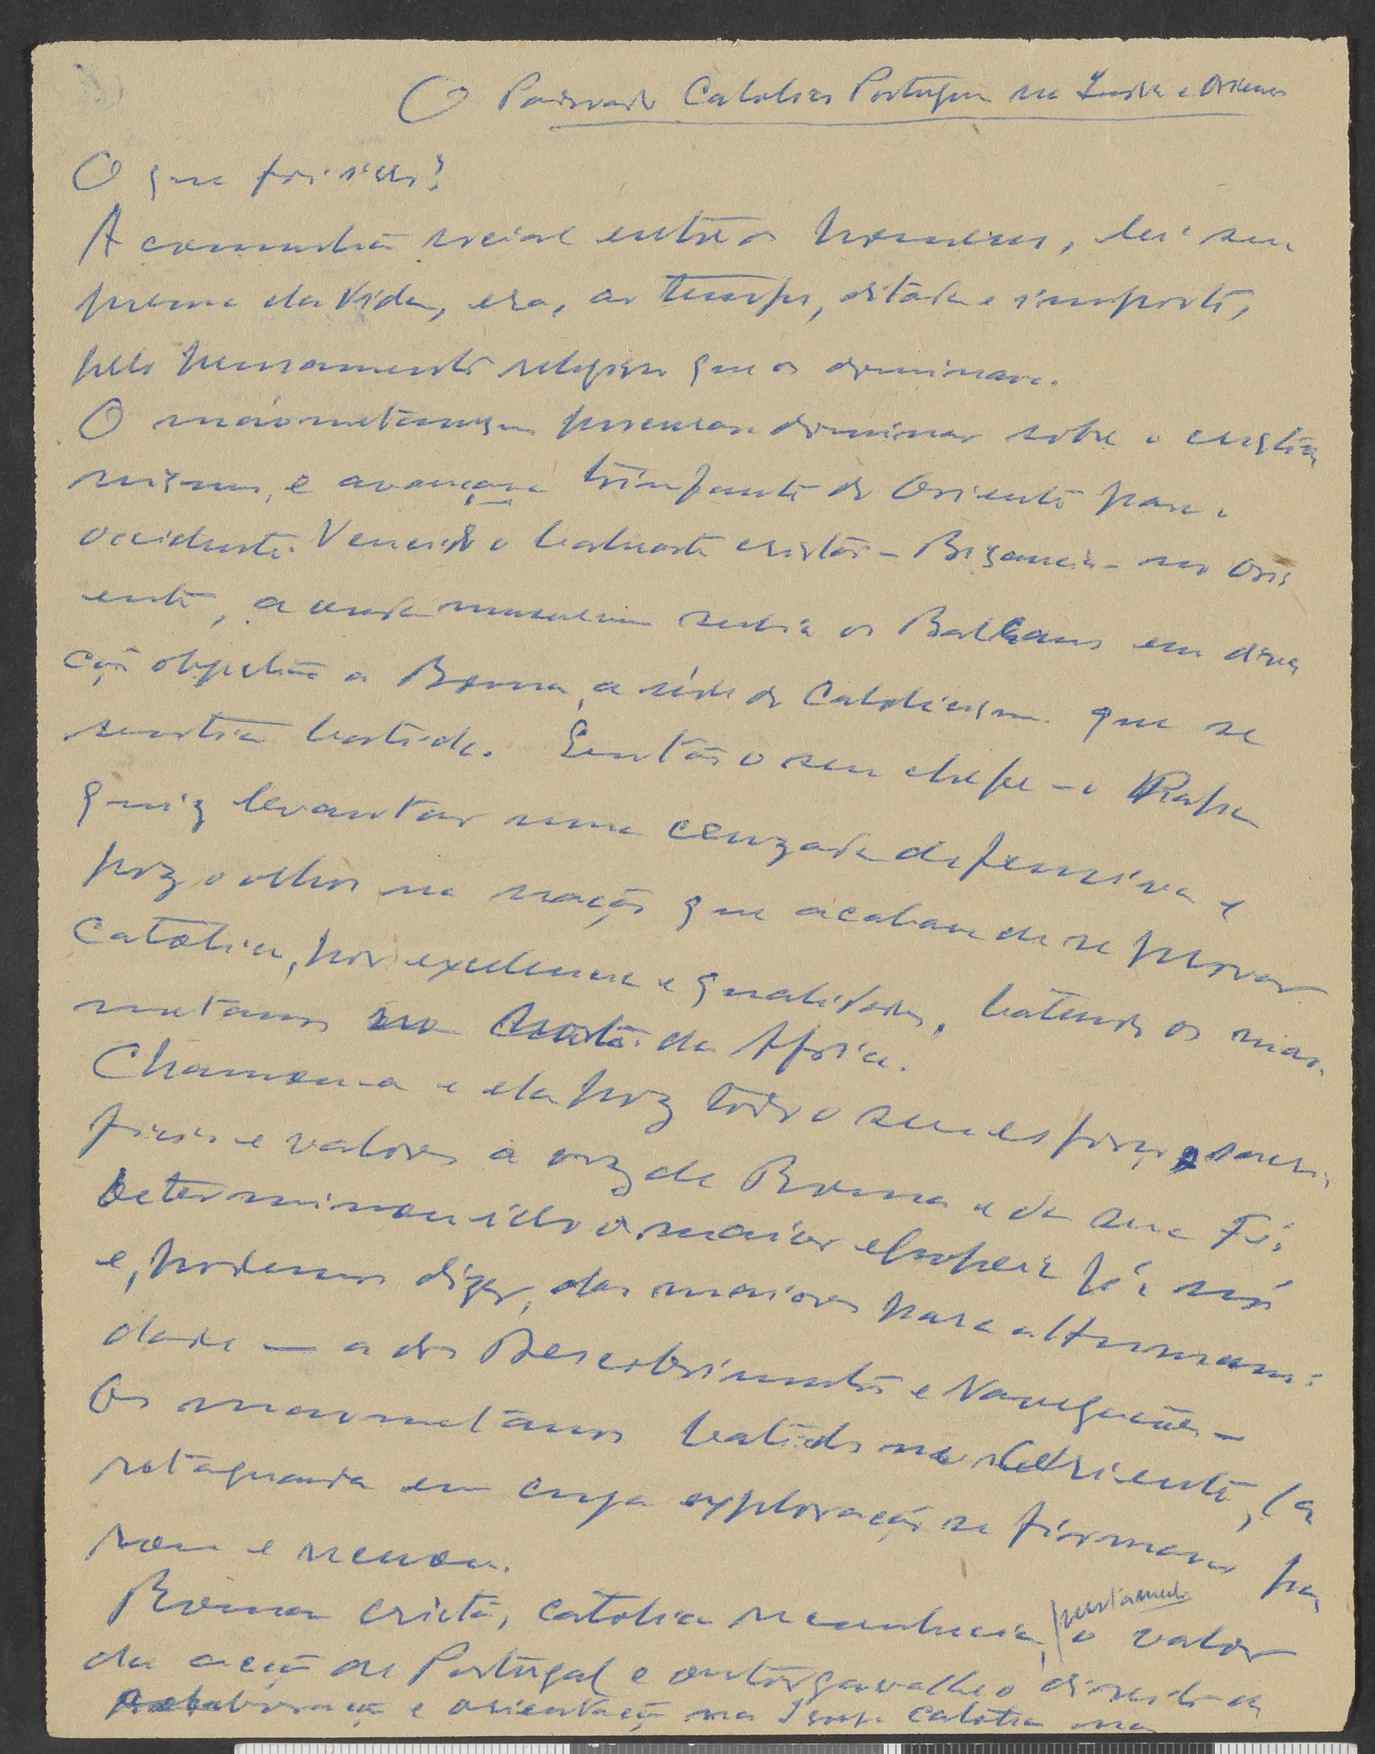 O Padroado Catolico Portuguez na India e Oriente
O que foi isso?
A comunhão social entre os homens, lei su
prema da Vida, era, ao tempo, ditada e imposta,
pelo pensamento religioso que os dominava.
O maometanismo procurava dominar sobre o cristia
nismo, e avançava triunfante do Oriente para o
occidente. Vencido o baluarte cristão - Bizancio - no Ori
ente, a onda musulmana subia os Balkans em dire
ção objectiva a Roma, a séde do Catolicismo que se
sentia batida. Então o seu chefe - o Papa
quiz levantar uma cruzada defensiva e
poz o olhos na nação que acabava de se provar
Catolica, por excelencia e qualidades, batendo os mao
metanos na Ceuta da Africa.
Chamou-a e ela poz todo o seu esforço, sacri
ficios e valores á voz de Roma e da sua Fé.
Determinou isso a maior epopeia para nós
e, podemos dizer, das maiores para a Humani
dade — a dos Descobrimentos e Navegações -
Os maometanos batidos no Oriente, la
retaguarda em cuja exploração se firmavam pa
rou e recuou.
Roma cristã, catolica reconhecia, justamente o valor
da acção de Portugal e outorgava-lhe o direito de
colaboração e orientação na Igreja Catolica na